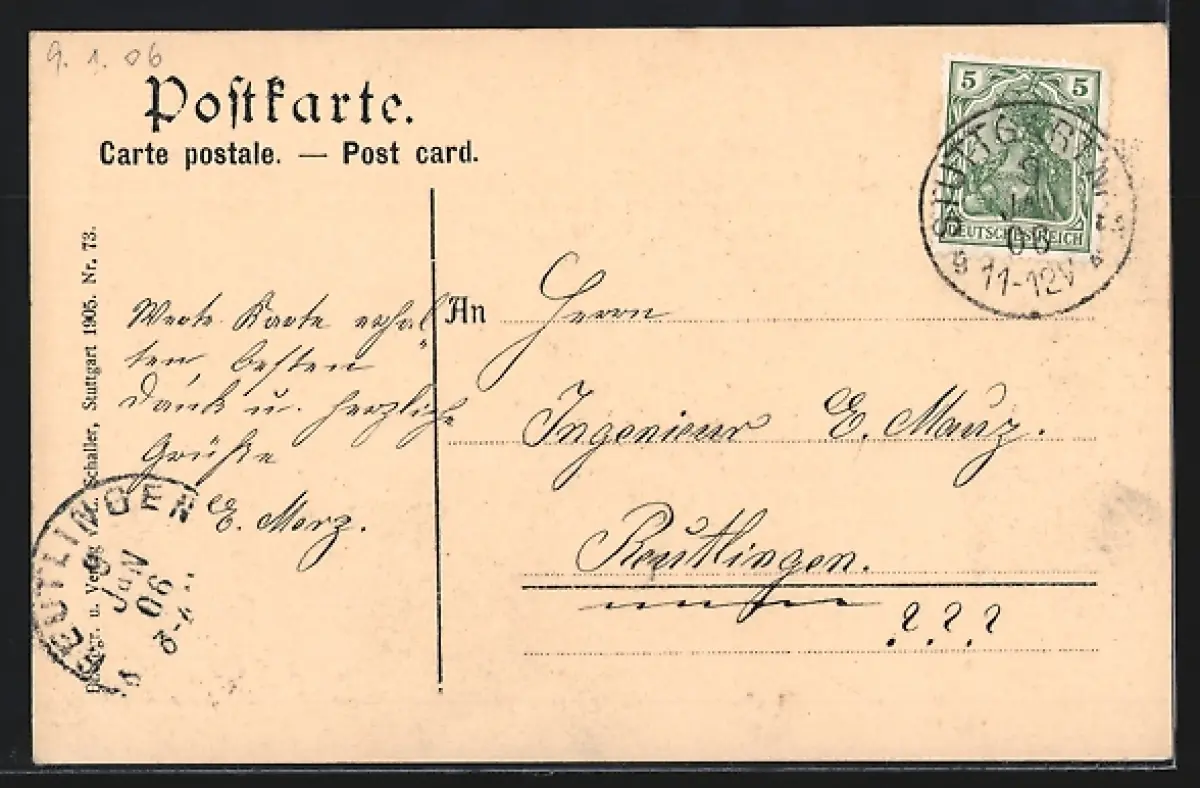 9.1.06
Postkarte.
Carte postale. — Post card.
5 5
DEUTSCHES REICH
STUTTGART
9
JAN
06
11-12V
Schaller, Stuttgart 1905. Nr. 73.
Werte Karte erhal
ten, besten
Dank u. herzliche
Grüße
E. Merz.
An Herrn
Ingenieur E. Mauz.
Reutlingen.
???
REUTLINGEN
9
JAN
06